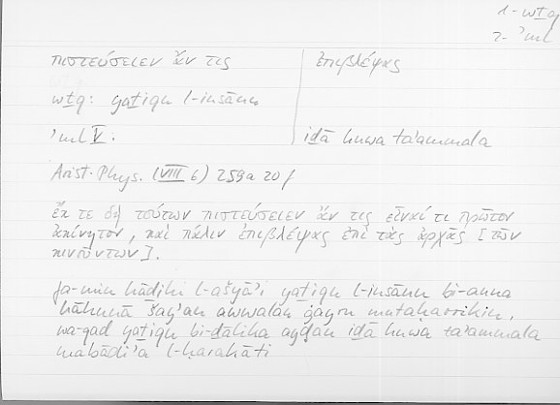 1 - wṯq
2 - ʾml
πιστεύσειεν ἄν τις | ἐπιβλέψας
wṯq: yaṯiqu l-insānu
ʾml V: iḏā huwa taʾammala
Arist. Phys. (VIII 6) 259a 20 f
ἔκ τε δὴ τούτων πιστεύσειεν ἄν τις εἶναί τι πρῶτον
ἀκίνητον, καὶ πάλιν ἐπιβλέψας ἐπὶ τὰς ἀρχὰς [τῶν
κινούντων].
fa-min hāḏihi l-ašyāʾi yaṯiqu l-insānu bi-anna
hāhunā šayʾan awwalan ġayru mutaḥarrikin,
wa-qad yaṯiqu bi-ḏālika ayḍan iḏā huwa taʾammala
mabādiʾa l-ḥarakāti